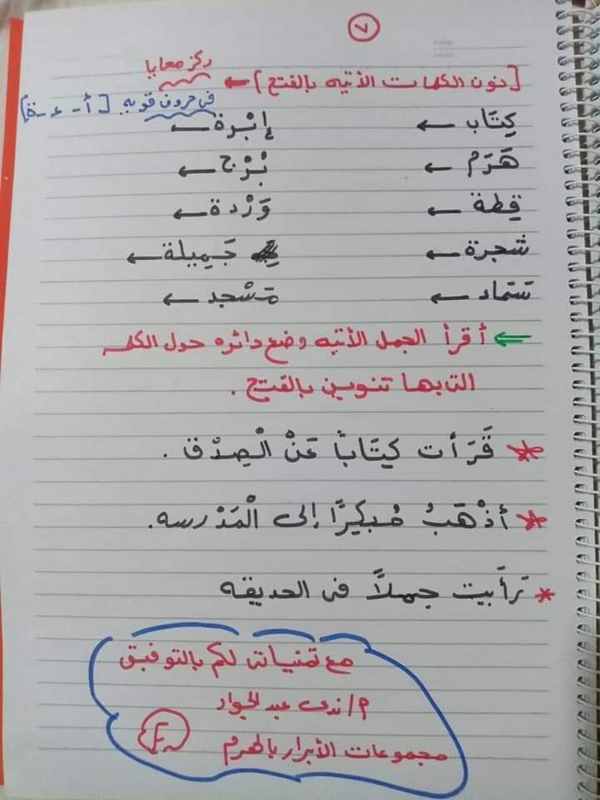 ٧
ركز معايا
[نون الكلمات الأتيه بالفتح] ←
فى حروف قويه [أ - ء - ة]
كِتَاب ← إبْرة ←
هَرَم ← بُرْج ←
قطة ← وَرْدة ←
شجرة ← جَمِيلة ←
سَماد ← مَسْجد ←
⇐ أقرأ الجمل الأتيه وضع دائره حول الكلمه
التى بها تنوين بالفتح .
* قَرَأت كِتَاباً عَنْ الْصِدْق .
* أذْهَبُ مُبكِرًا إلى الْمَدْرسه.
* رَأَيت جملاً فى الحديقه
مع تمنياتى لكم بالتوفيق
م/ ندى عبد الجواد
مجموعات الأبرار بالهرم